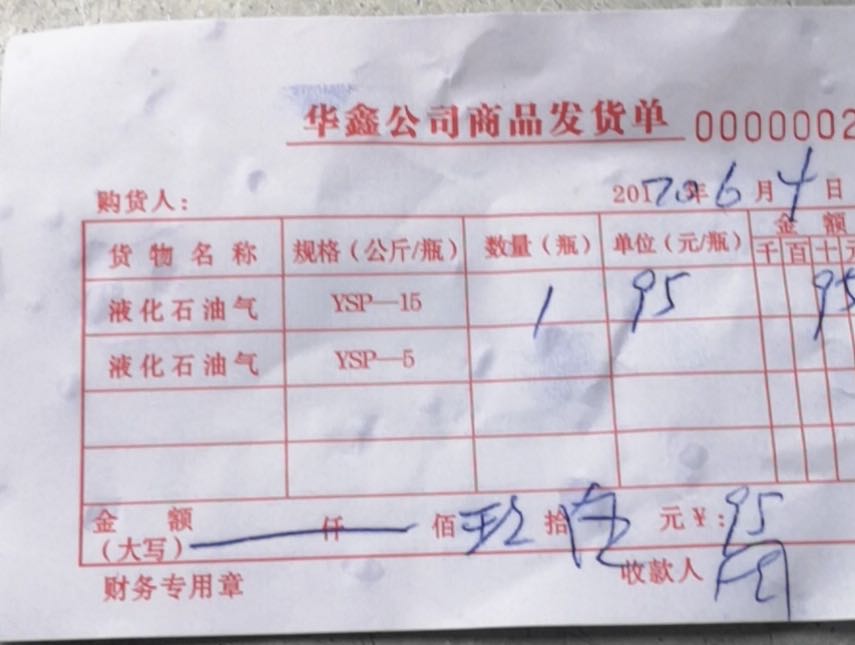 华鑫公司商品发货单 0000002
购货人：
2017年6月4日
货物名称 规格（公斤/瓶） 数量（瓶） 单位（元/瓶） 金额
千 百 十 元
液化石油气 YSP—15 1 95 95
液化石油气 YSP—5
金额（大写） 仟 佰 玖 拾 伍 元 ￥：95
财务专用章 收款人